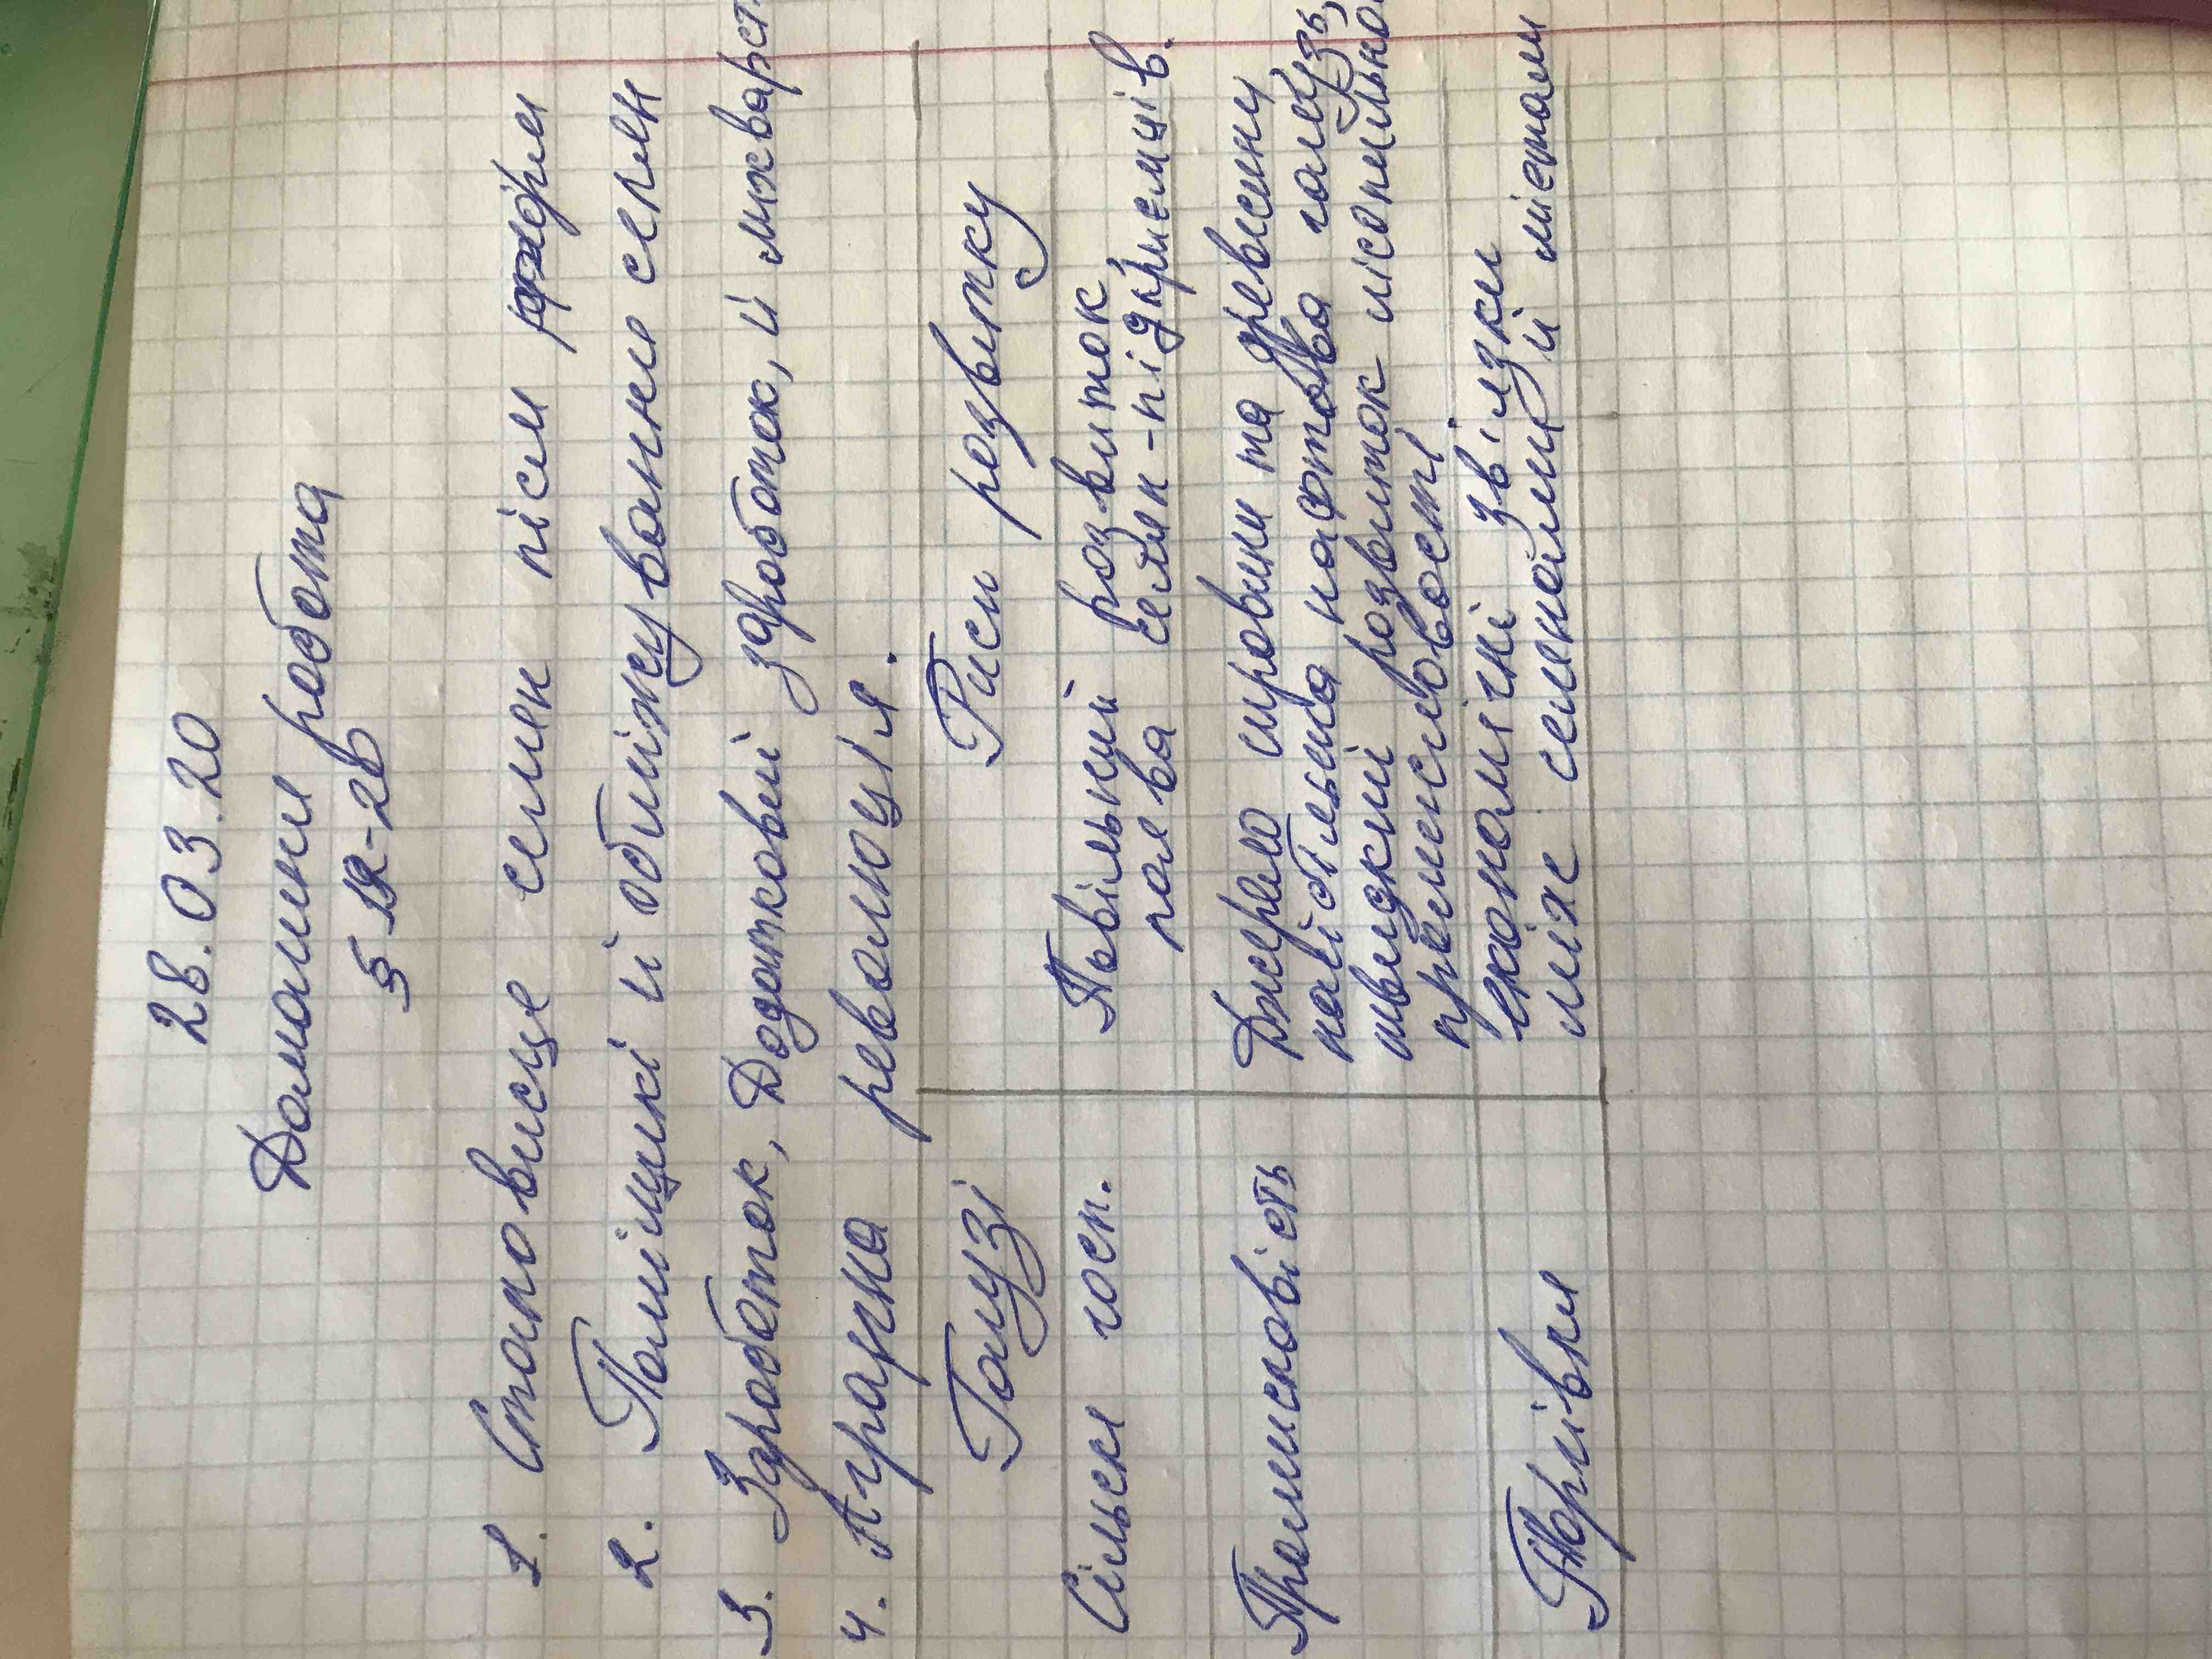 28.03.20
Домашня робота
§ 12-2в
1. Становище селян після реформ
2. Поміщики й обліжування селян
3. Здробіток, Додатковий здробіток, й лихварст.
4. Аграрна революція.
Галузі Риси розвитку
Сільськ госп. Повільний розвиток
поява селян-підприємців.
Промисловість Джерело сировини та древесини
найбільша нафтова галузь,
швидкий розвиток лісопильно.
промисловості.
Торгівля економічні зв'язки
між селеномиц й містами